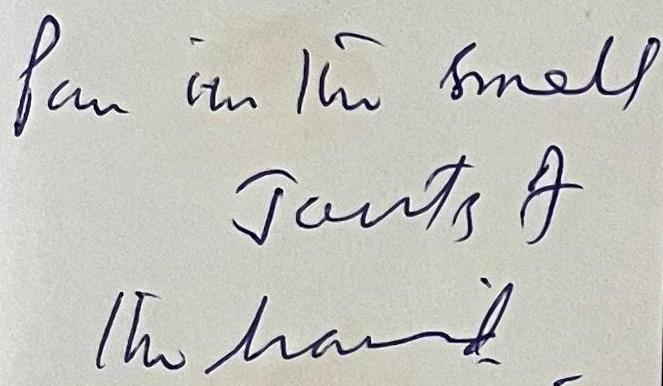 Pain in the small
Joints of
the hand.